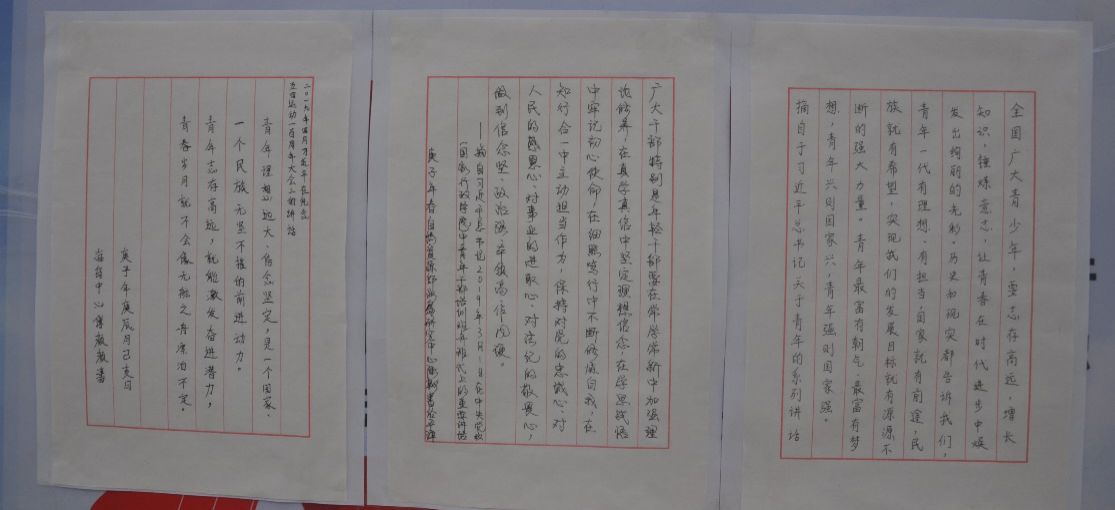 全国广大青少年，要志存高远，增长
知识，锤炼意志，让青春在时代进步中焕
发出绚丽的光彩。历史和现实都告诉我们，
青年一代有理想、有担当，国家就有前途，民
族就有希望，实现我们的发展目标就有源源不
断的强大力量。青年最富有朝气、最富有梦
想，青年兴则国家兴，青年强则国家强。
摘自于习近平总书记关于青年的系列讲话
广大干部特别是年轻干部要在常学常新中加强理
论修养，在真学真信中坚定理想信念，在学思践悟
中牢记初心使命，在细照笃行中不断修炼自我，在
知行合一中主动担当作为，保持对党的忠诚心、对
人民的感恩心、对事业的进取心、对法纪的敬畏心，
做到信念坚、政治强、本领高、作风硬。
——摘自习近平总书记2019年3月1日在中央党校
（国家行政学院）中青年干部培训班开班式上的重要讲话
庚子年春
二〇一九年四月习近平在纪念
五四运动一百周年大会上的讲话
青年理想远大、信念坚定，是一个国家、
一个民族无坚不摧的前进动力。
青年志存高远，就能激发奋进潜力，
青春岁月就不会像无舵之舟漂泊不定。
庚子年庚辰月己亥日